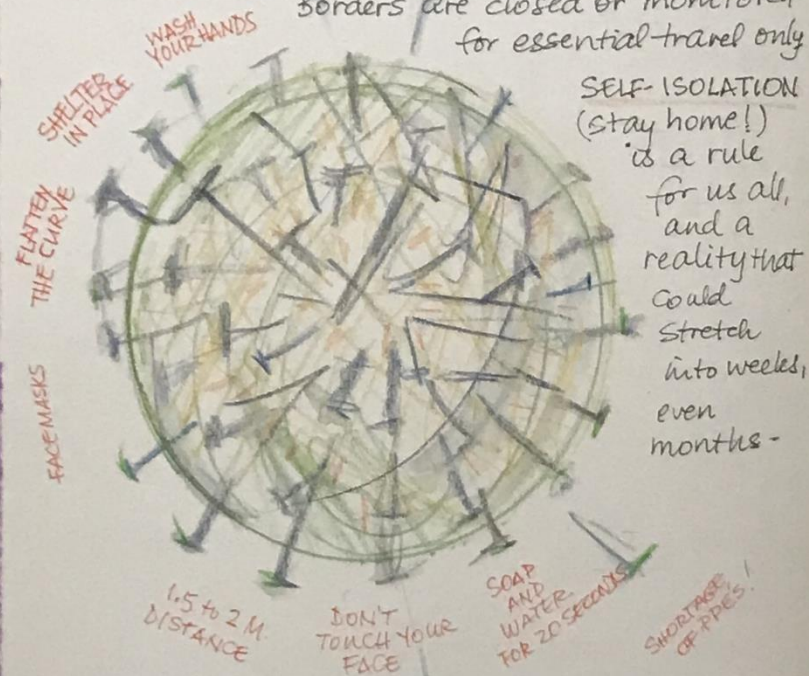 Borders are closed or monitored
for essential travel only
SELF-ISOLATION
(stay home!)
is a rule
for us all,
and a
reality that
could
stretch
into weeks,
even
months-
WASH
YOUR HANDS
SHELTER
IN PLACE
FLATTEN
THE CURVE
FACEMASKS
1.5 to 2 M.
DISTANCE
DON'T
TOUCH YOUR
FACE
SOAP
AND
WATER
FOR 20 SECONDS
SHORTAGE
OF PPES!